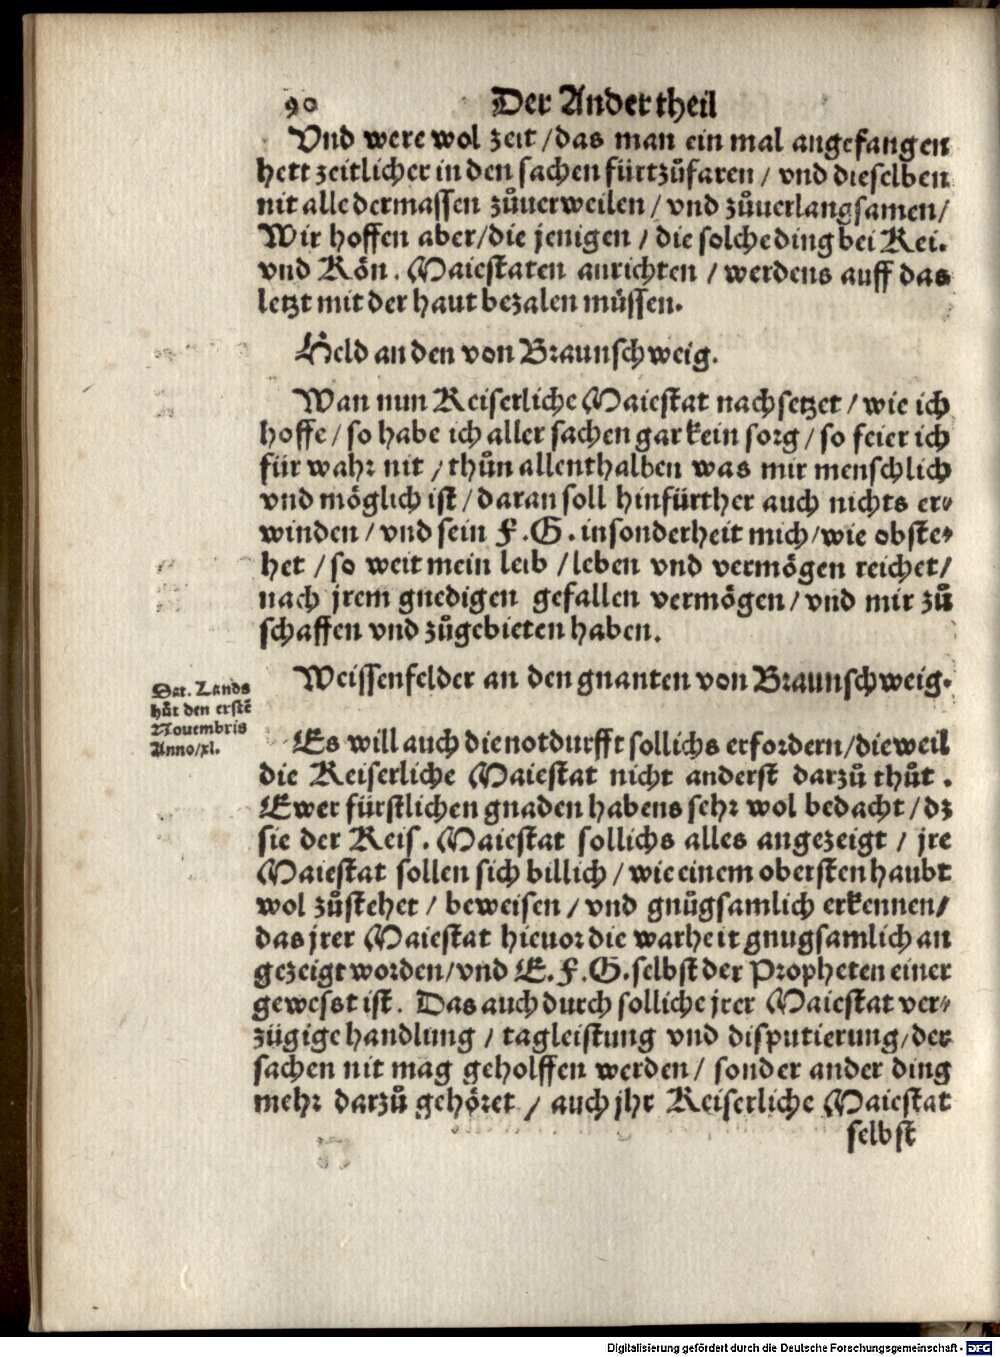 90 Der Ander theil
Vnd were wol zeit / das man ein mal angefangen
hett zeitlicher in den sachen fürtzůfaren / vnd dieselben
nit alle dermassen zůuerweilen / vnd zůuerlangsamen /
Wir hoffen aber / die jenigen / die solche ding bei Kei.
vnd Kön. Maiestaten anrichten / werdens auff das
letzt mit der haut bezalen müssen.
Held an den von Braunschweig.
Wan nun Keiserliche Maiestat nachsetzet / wie ich
hoffe / so habe ich aller sachen gar kein sorg / so feier ich
für wahr nit / thůn allenthalben was mir menschlich
vnd möglich ist / daran soll hinfürther auch nichts er-
winden / vnd sein F. G. insonderheit mich / wie obste-
het / so weit mein leib / leben vnd vermögen reichet /
nach jrem gnedigen gefallen vermögen / vnd mir zů
schaffen vnd zůgebieten haben.
Weissenfelder an den gnanten von Braunschweig.
Dat. Lands
hůt den erstē
Nouembris
Anno / xl.
Es will auch die notdurfft sollichs erfordern / dieweil
die Keiserliche Maiestat nicht anderst darzů thůt.
Ewer fürstlichen gnaden habens sehr wol bedacht / dz
sie der Keis. Maiestat sollichs alles angezeigt / jre
Maiestat sollen sich billich / wie einem obersten haubt
wol zůstehet / beweisen / vnd gnůgsamlich erkennen /
das jrer Maiestat hieuor die warheit gnugsamlich an
gezeigt worden / vnd E. F. G. selbst der Propheten einer
gewesst ist. Das auch durch solliche jrer Maiestat ver-
zügige handlung / tagleistung vnd disputierung / der
sachen nit mag geholffen werden / sonder ander ding
mehr darzů gehöret / auch jhr Keiserliche Maiestat
selbst
Digitalisierung gefördert durch die Deutsche Forschungsgemeinschaft - DFG